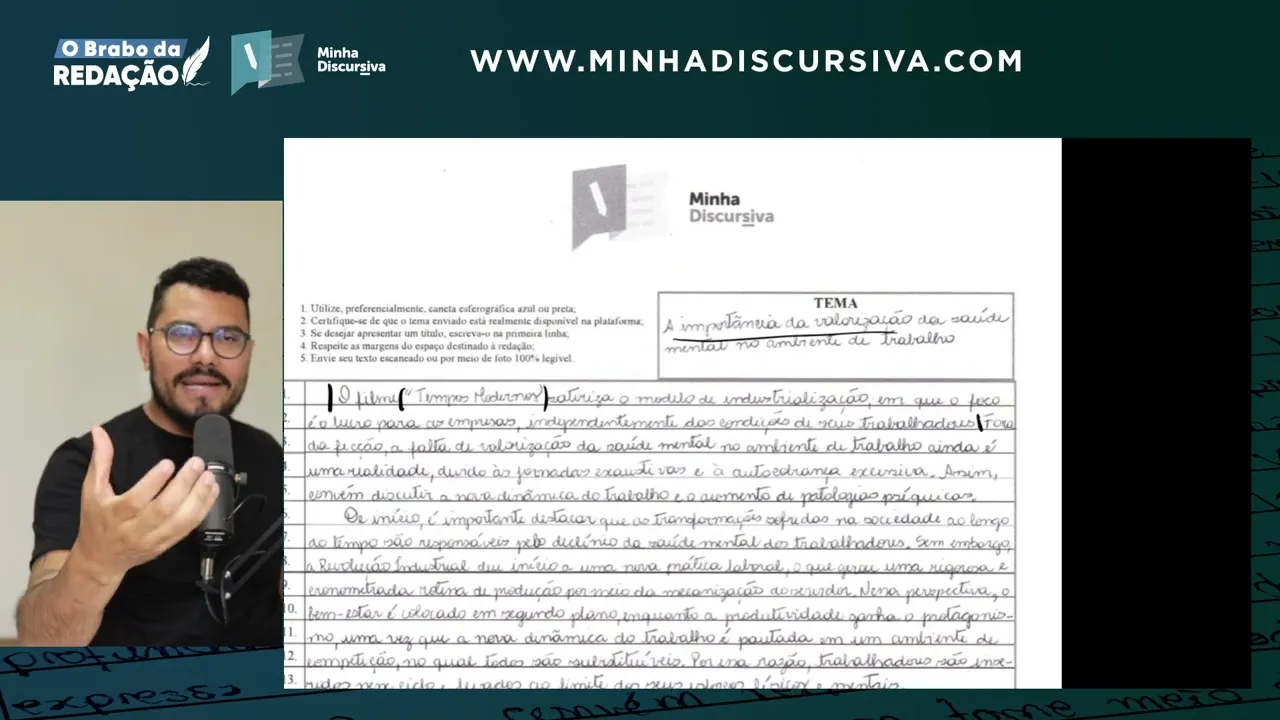 O Brabo da
REDAÇÃO
Minha
Discursiva
WWW.MINHADISCURSIVA.COM
Minha
Discursiva
1. Utilize, preferencialmente, caneta esferográfica azul ou preta;
2. Certifique-se de que o tema enviado está realmente disponível na plataforma;
3. Se desejar apresentar um título, escreva-o na primeira linha;
4. Respeite as margens do espaço destinado à redação;
5. Envie seu texto escaneado ou por meio de foto 100% legível.
TEMA
A importância da valorização da saúde
mental no ambiente de trabalho
1. O filme "Tempos Modernos" satoriza o modelo de industrialização, em que o foco
2. é o lucro para as empresas, independentemente das condição de seus trabalhadores. Fora
3. da ficção, a falta de valorização da saúde mental no ambiente de trabalho ainda é
4. uma realidade, devido às jornadas exaustivas e à autocobrança excessiva. Assim,
5. convém discutir a nova dinâmica do trabalho e o aumento de patologias psíquicas.
6. De início, é importante destacar que as transformações sofridas na sociedade ao longo
7. do tempo são responsáveis pelo declínio da saúde mental dos trabalhadores. Sem embargo,
8. a Revolução Industrial deu início a uma nova prática laboral, o que gerou uma rigorosa e
9. cronometrada rotina de produção por meio da mecanização do servidor. Nessa perspectiva, o
10. bem-estar é colocado em segundo plano, enquanto a produtividade ganha o protagonis-
11. mo, uma vez que a nova dinâmica do trabalho é pautada em um ambiente de
12. competição, no qual todos são substituíveis. Por essa razão, trabalhadores são inse-
13. ridos nesse ciclo e levados ao limite dos seus esforços físicos e mentais.
expresse
convém
tome meio